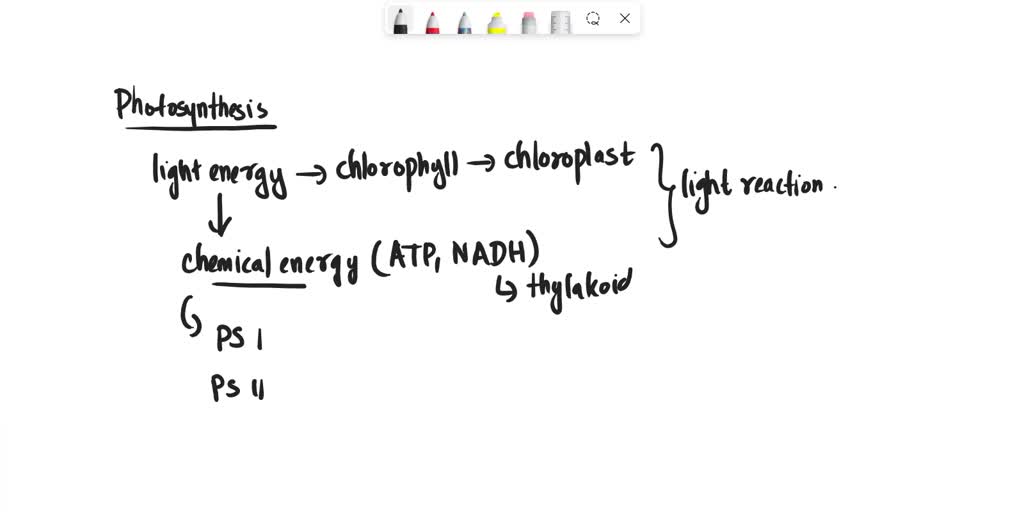 Photosynthesis
light energy → chlorophyll → chloroplast } light reaction.
↓
chemical energy (ATP, NADH)
↳ thylakoid
↳ PS I
PS II